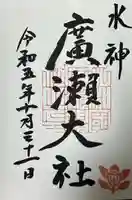 水神
廣瀬大社
令和五年十月三十一日